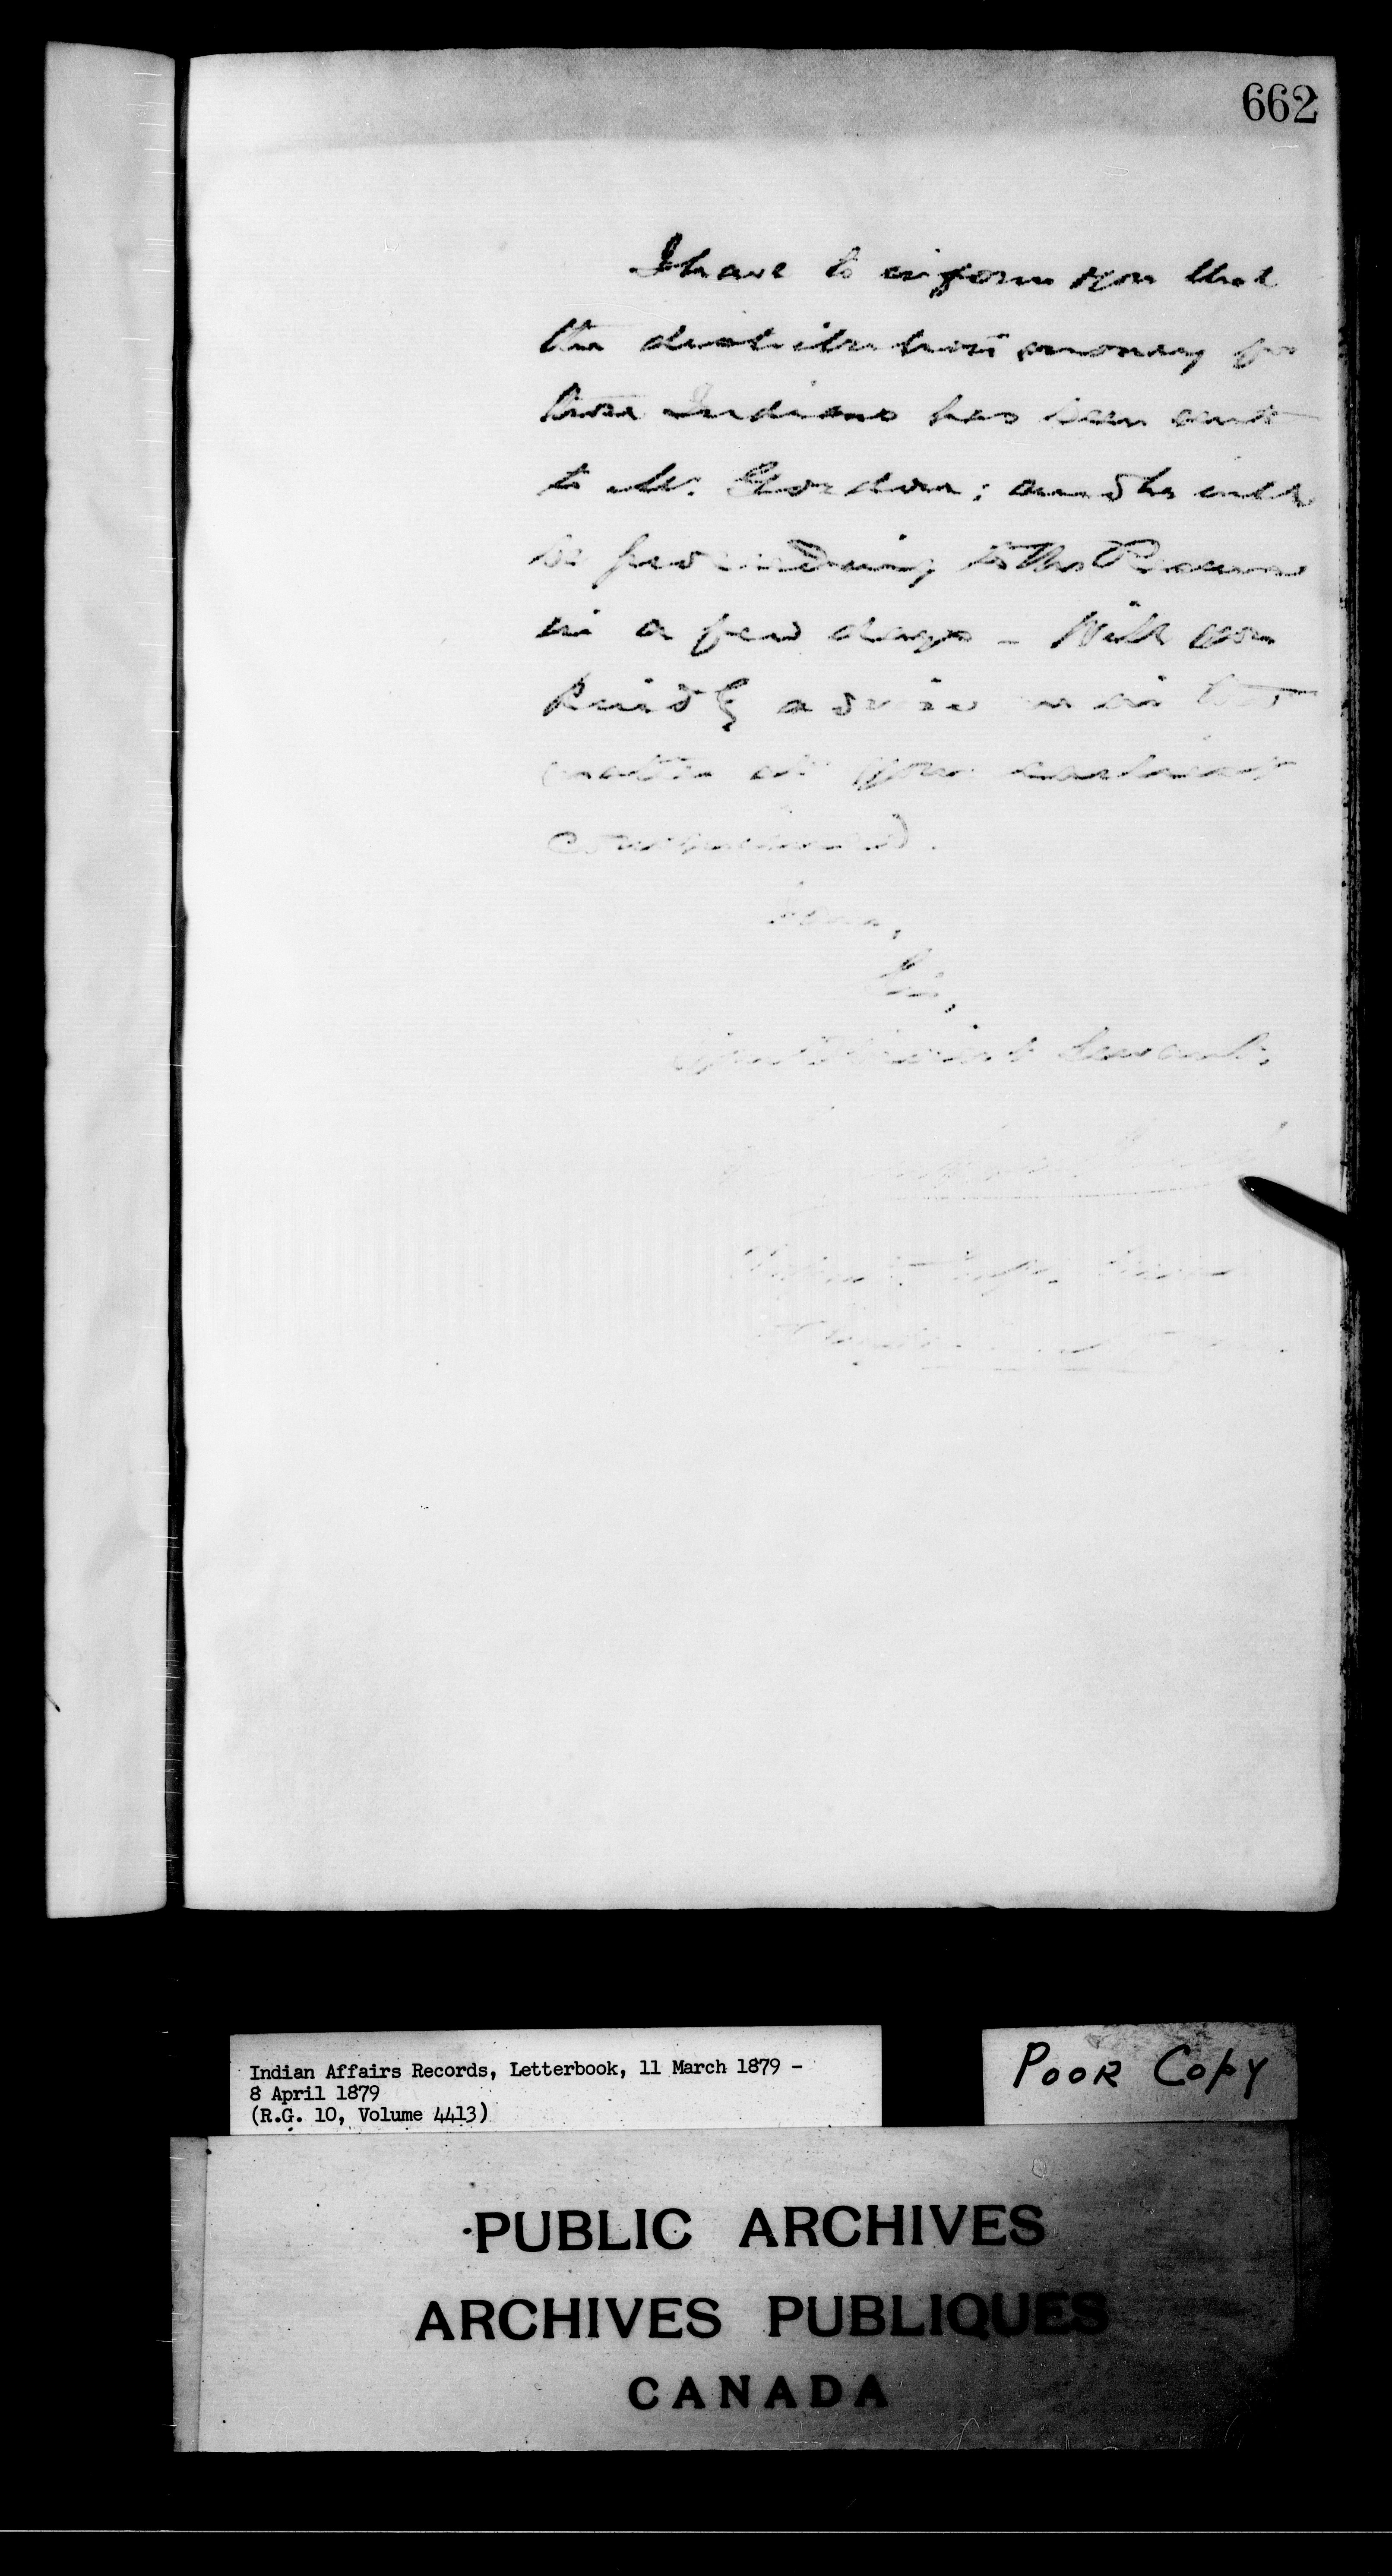 662
I have to inform you that
the distribution money for
these Indians has been sent
to Mr. Gordon; and he will
be proceeding to the Reserve
in a few days — Will you
kindly advise me in this
matter at your earliest
convenience.
I am,
Sir,
Your Obedient Servant,
Deputy Supt. General
Indian Affairs Records, Letterbook, 11 March 1879 -
8 April 1879
(R.G. 10, Volume 4413)
POOR COPY
PUBLIC ARCHIVES
ARCHIVES PUBLIQUES
CANADA